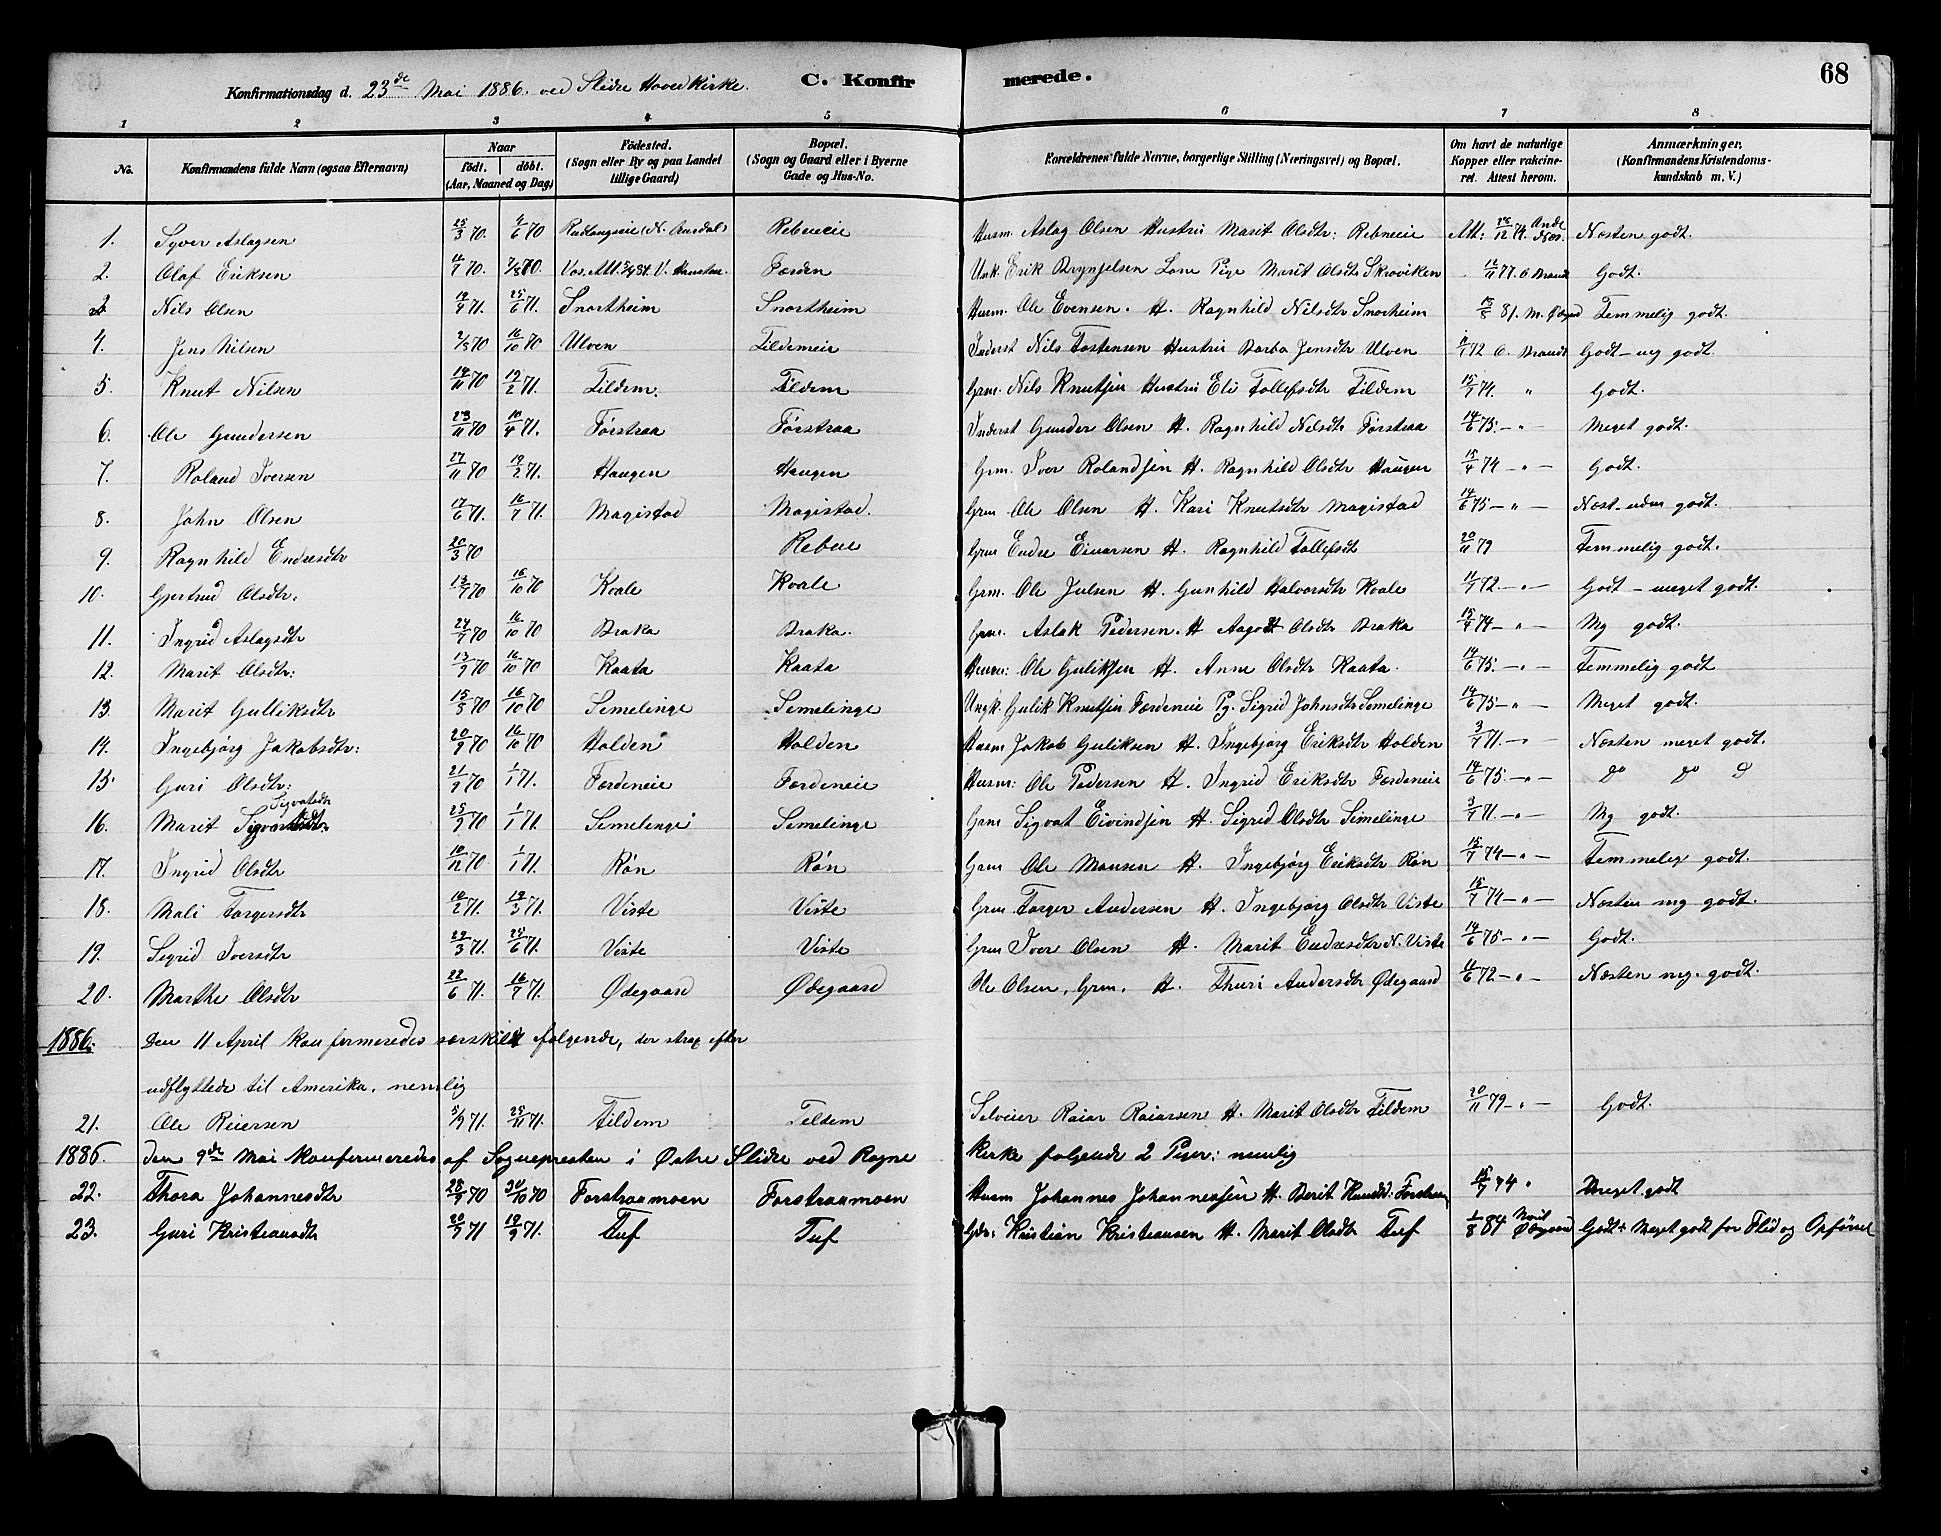 68
C. Konfirmerede.
Konfirmationsdag d. 23de Mai 1886. ved Slidre Hoved Kirke.
1 2 3 4 5 6 7 8
No. | Konfirmandens fulde Navn (ogsaa Efternavn) | Naar født. døbt. (Aar, Maaned og Dag) | Fødested. (Sogn eller By og paa Landet tillige Gaard) | Bopæl. (Sogn og Gaard eller i Byerne Gade og Hus-No. | Forældrenes fulde Navne, borgerlige Stilling (Næringsvei) og Bopæl. | Om havt de naturlige Kopper eller vakcineret. Attest herom. | Anmærkninger, (Konfirmandens Kristendomskundskab m. V.)
1. Syver Aslagsen 25/3 70. 6/6 70 (N. Aurdal) Rebneeie Husm. Aslag Olsen Hustru Marit Olsdtr: Rebneeie Att: 28/12 74. Næsten godt.
2. Olaf Eriksen 70. 7/8 70. Færden Unk. Erik Brynjelsen Løse Pige Marit Olsdtr Skrøviken 77. O Brandt Godt.
3 Nils Olsen 71. 25/6 71. Snortheim Snortheim Husm. Ole Evensen. H. Ragnhild Nilsdtr Snorheim 81. Temmelig godt.
4. Jens Nilsen 70 16/10 70 Ulven Tildemeie Inderst Nils Tostensen Hustru Barbo Jensdtr Ulven 72 O. Brandt Godt - mg godt.
5. Knut Nilsen 14/11 70 19/2 71. Tildem. Tildem Grm. Nils Knutsen Hustru Eli Tollefsdtr Tildem 15/7 74. " Godt.
6. Ole Gundersen 23/11 70 10/4 71. Førstraa Førstraa Inderst Gunder Olsen H. Ragnhild Nilsdtr Førstraa 14/6 75. - " - Meget godt.
7. Roland Iversen 27/11 70 19/2 71. Haugen Haugen Grm. Iver Rolandsen H. Ragnhild Olsdtr Haugen 74 - " - Godt.
8. John Olsen 17/6 71. 16/7 71. Magistad Magistad. Grm Ole Olsen H. Kari Knutsdtr Magistad 14/6 75 - " - godt.
9. Ragnhild Endresdtr 20/3 70 Rebne Grm Endre Eivarsen H. Ragnhild Tollefsdt 20/11 79 Temmelig godt.
10. Gjertrud Olsdtr: 13/7 70 16/10 70 Kvale Kvale Grm. Ole Julsen H. Gunhild Halvorsdtr Kvale 72. - " - Godt - meget godt.
11. Ingrid Aslagsdtr 24/7 70 16/10 70 Braka Braka. Grm. Aslak Pedersen. H Aagodt Olsdtr Braka 74 - " - Mg godt.
12. Marit Olsdtr: 13/9 70 16/10 70 Kaata Kaata Husm: Ole Guliksen H. Anne Olsdtr Kaata. 14/6 75. - " - Temmelig godt
13. Marit Gulliksdtr 15/5 70 16/10 70 Semelinge Semelinge Ungk. Gulik Knutsen Færdeneie Pg. Sigrid Johnsdtr Semelinge 14/6 75 - " - Meget godt.
14. Ingebjørg Jakobsdtr: 20/9 70 16/10 70 Holden Holden Husm Jakob Guliksen H. Ingebjørg Eriksdtr Holden 3/7 71. - " - Næsten meget godt.
15. Guri Olsdtr: 21/9 70 1/1 71. Færdeneie Færdeneie Husm: Ole Pedersen H. Ingrid Eriksdtr Færdeneie 14/6 75. - " - do do do
16. Marit Sigvatsdtr 25/9 70 1/1 71. Semelinge Semelinge Grm Sigvat Eivindsen H. Sigrid Olsdtr Semelinge 3/7 71 - " - Mg godt.
17. Ingrid Olsdtr 10/11 70 1/1 71. Røn Røn Grm Ole Monsen H. Ingebjørg Eriksdtr Røn 15/7 74 - " - Temmelig godt.
18. Mali Torgersdtr 10/2 71. 19/3 71. Viste Viste Grm Torger Andersen H. Ingebjørg Olsdtr Viste 15/7 74 - " - Næsten mg godt.
19. Sigrid Iversdtr 29/3 71. 25/6 71. Viste Viste Grm Iver Olsen H. Marit Endresdtr N. Viste 14/6 75 - " - Godt.
20. Marthe Olsdtr 22/6 71. 16/7 71. Ødegaard Ødegaard Ole Olsen, Grm. H. Thuri Andersdtr Ødegaard 72 - " - Næsten mg. godt.
1886: Den 11 April konfirmeredes særskilt følgende, der strax efter
udflyttede til Amerika, nemlig
21. Ole Reiersen 5/9 71. 71. Tildem Teldem Selveier Raiar Raiarsen H. Marit Olsdtr Tildem 20/11 79 - " - Godt.
1886. den 9de Mai konfirmeredes af Sognepresten i Østre Slidre ved Rogne Kirke følgende 2 Piger: nemlig
22. Thora Johannesdtr 28/9 70 30/10 70 Forstraamoen Forstraamoen Husm Johannes Johannessen H. Berit 15/7 74 " Meget godt
23. Guri Kristiansdtr 20/7 71 71. Tuf Tuf Gbr. Kristian Kristiansen H. Marit Olsdtr Tuf 1/8 84 Godt. Meget godt for Flid og Opførsel